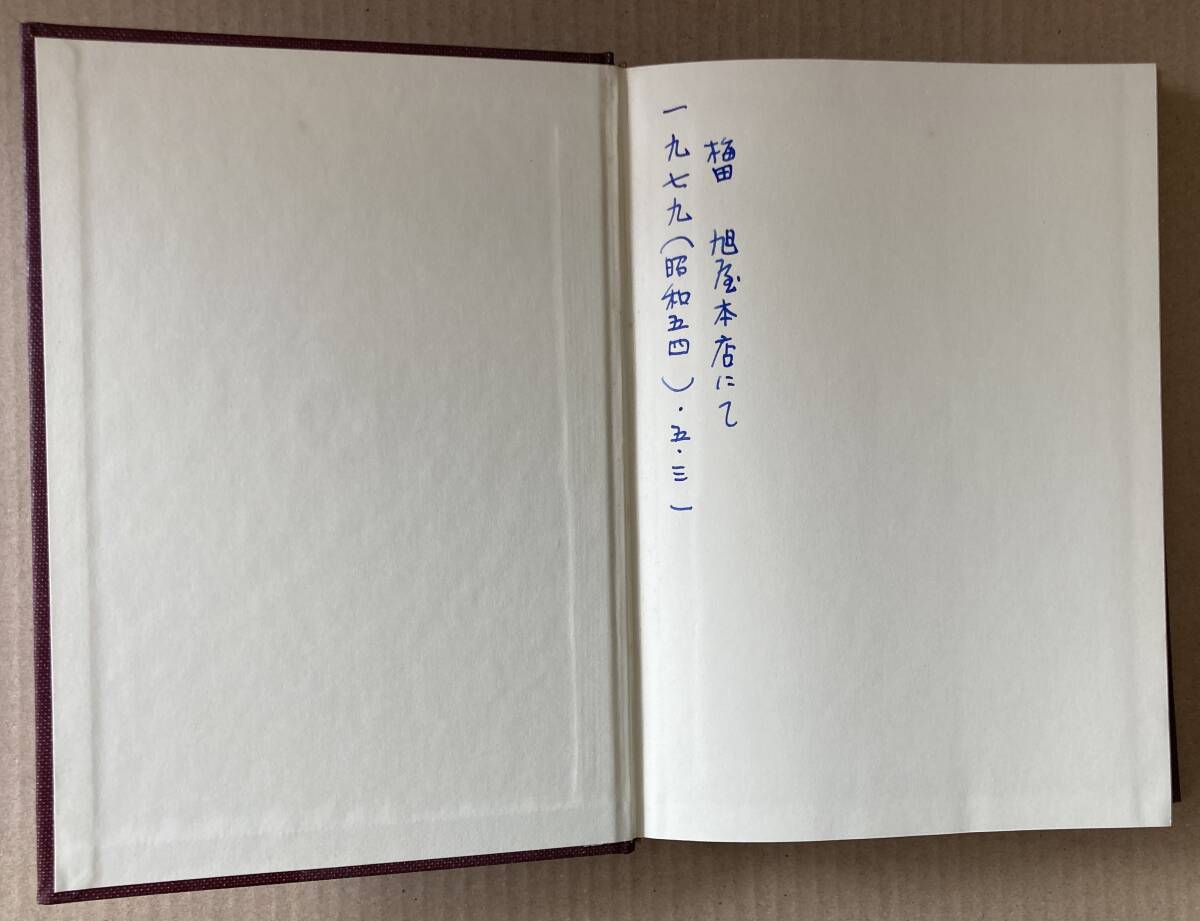 梅田　旭屋本店にて
一九七九(昭和五四)・五・三)